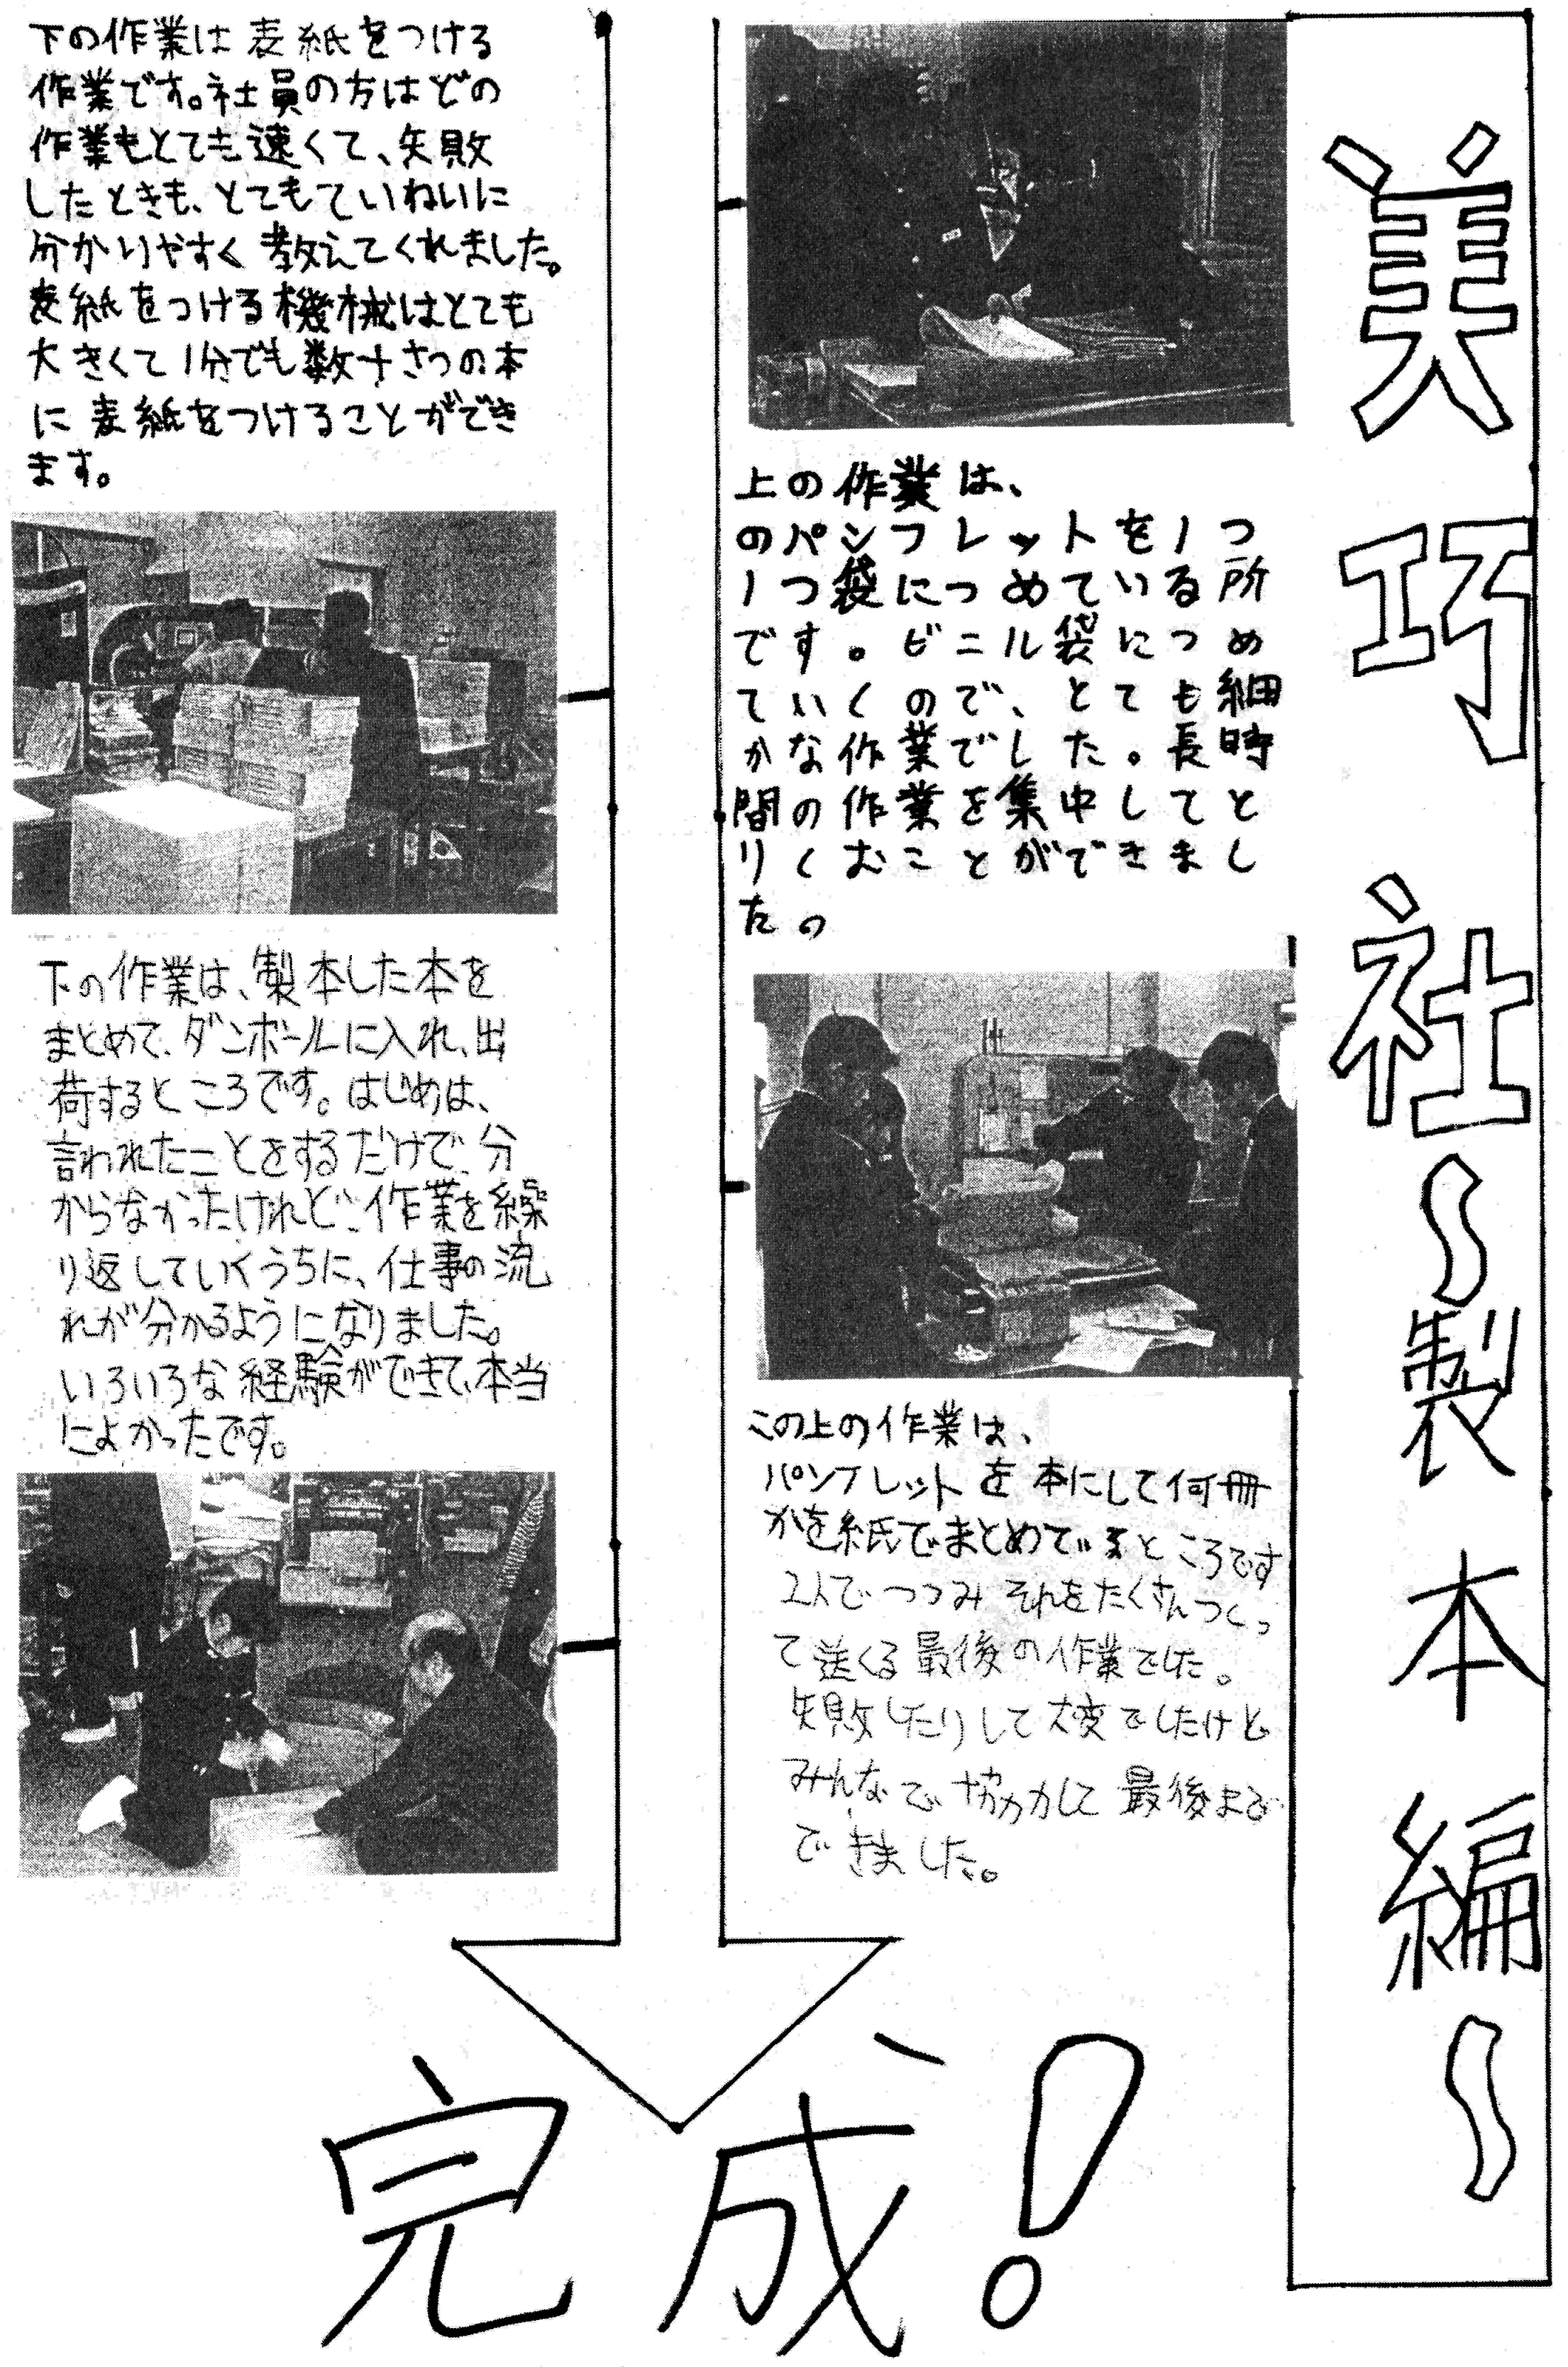 美巧社〜製本編〜
上の作業は、
のパンフレットを1つ
1つ袋につめている所
です。ビニル袋につめ
ていくので、とても細
かな作業でした。長時
間の作業を集中してと
りくむことができまし
た。
この上の作業は、
パンフレットを本にして何冊
かを紙でまとめているところです
2人でつつみそれをたくさんつくっ
て送くる最後の作業でした。
失敗したりして大変でしたけど
みんなで協力して最後まで
できました。
下の作業は表紙をつける
作業です。社員の方はどの
作業もとても速くて、失敗
したときも、とてもていねいに
分かりやすく教えてくれました。
表紙をつける機械はとても
大きくて1分でも数十さつの本
に表紙をつけることができ
ます。
下の作業は、製本した本を
まとめて、ダンボールに入れ、出
荷するところです。はじめは、
言われたことをするだけで、分
からなかったけれど、作業を繰
り返していくうちに、仕事の流
れが分かるようになりました。
いろいろな経験ができて、本当
によかったです。
完成!